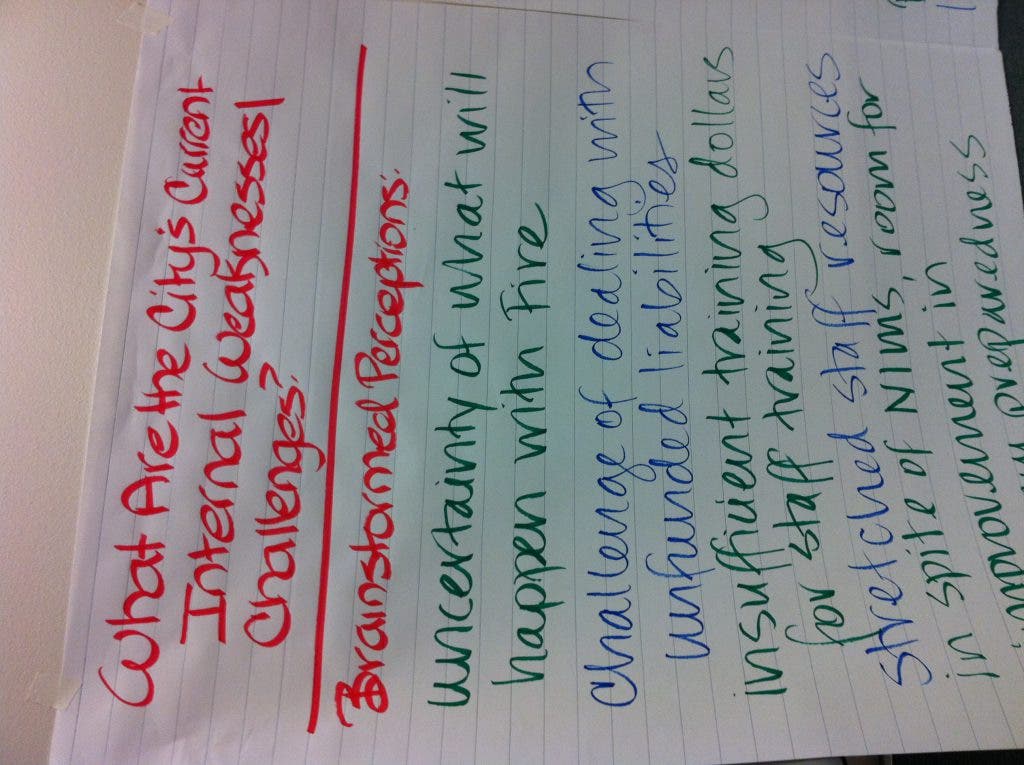 What Are the City's Current
Internal Weaknesses/
Challenges?
Brainstormed Perceptions:
uncertainty of what will
happen with Fire
Challenge of dealing with
unfunded liabilities
insufficient training dollars
for staff training
Stretched staff resources
in spite of NIMS, room for
improvement in
preparedness